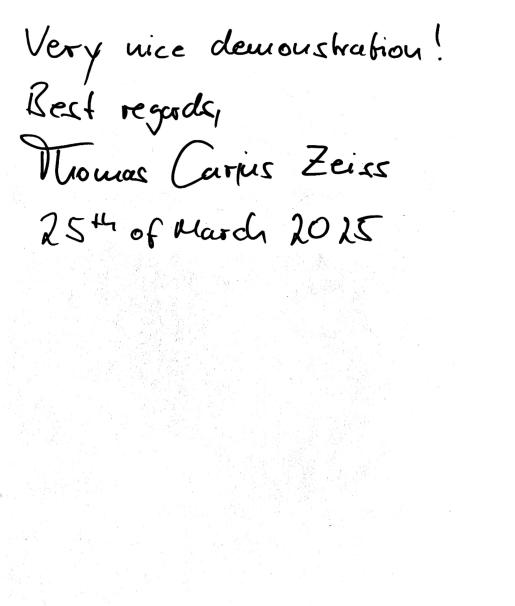 Very nice demonstration!
Best regards,
Thomas Carjus Zeiss
25th of March 2025